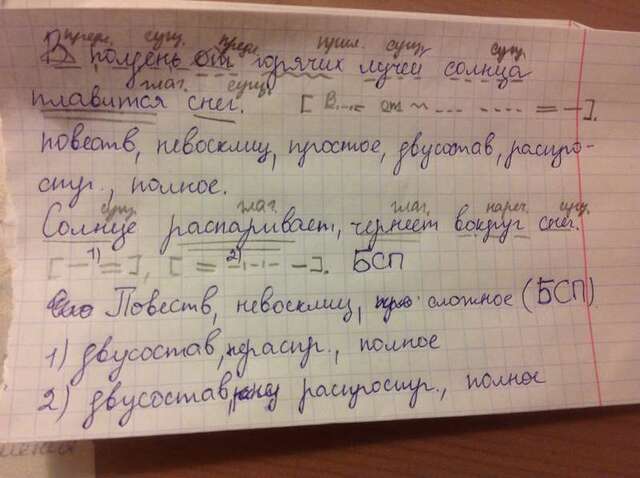 предл. сущ. предл. прил. сущ. сущ.
В полдень от горячих лучей солнца
глаг. сущ.
плавится снег. [В ... от ~ ... ... = –].
повеств, невосклиц, простое, двусостав, распро-
стр., полное.
сущ. глаг. глаг. нареч. сущ.
Солнце распаривает, чернеет вокруг снег.
1) 2)
[– =], [= –.–.– –]. БСП
Повеств, невосклиц, сложное (БСП)
1) двусостав, нераспр., полное
2) двусостав, распростр., полное